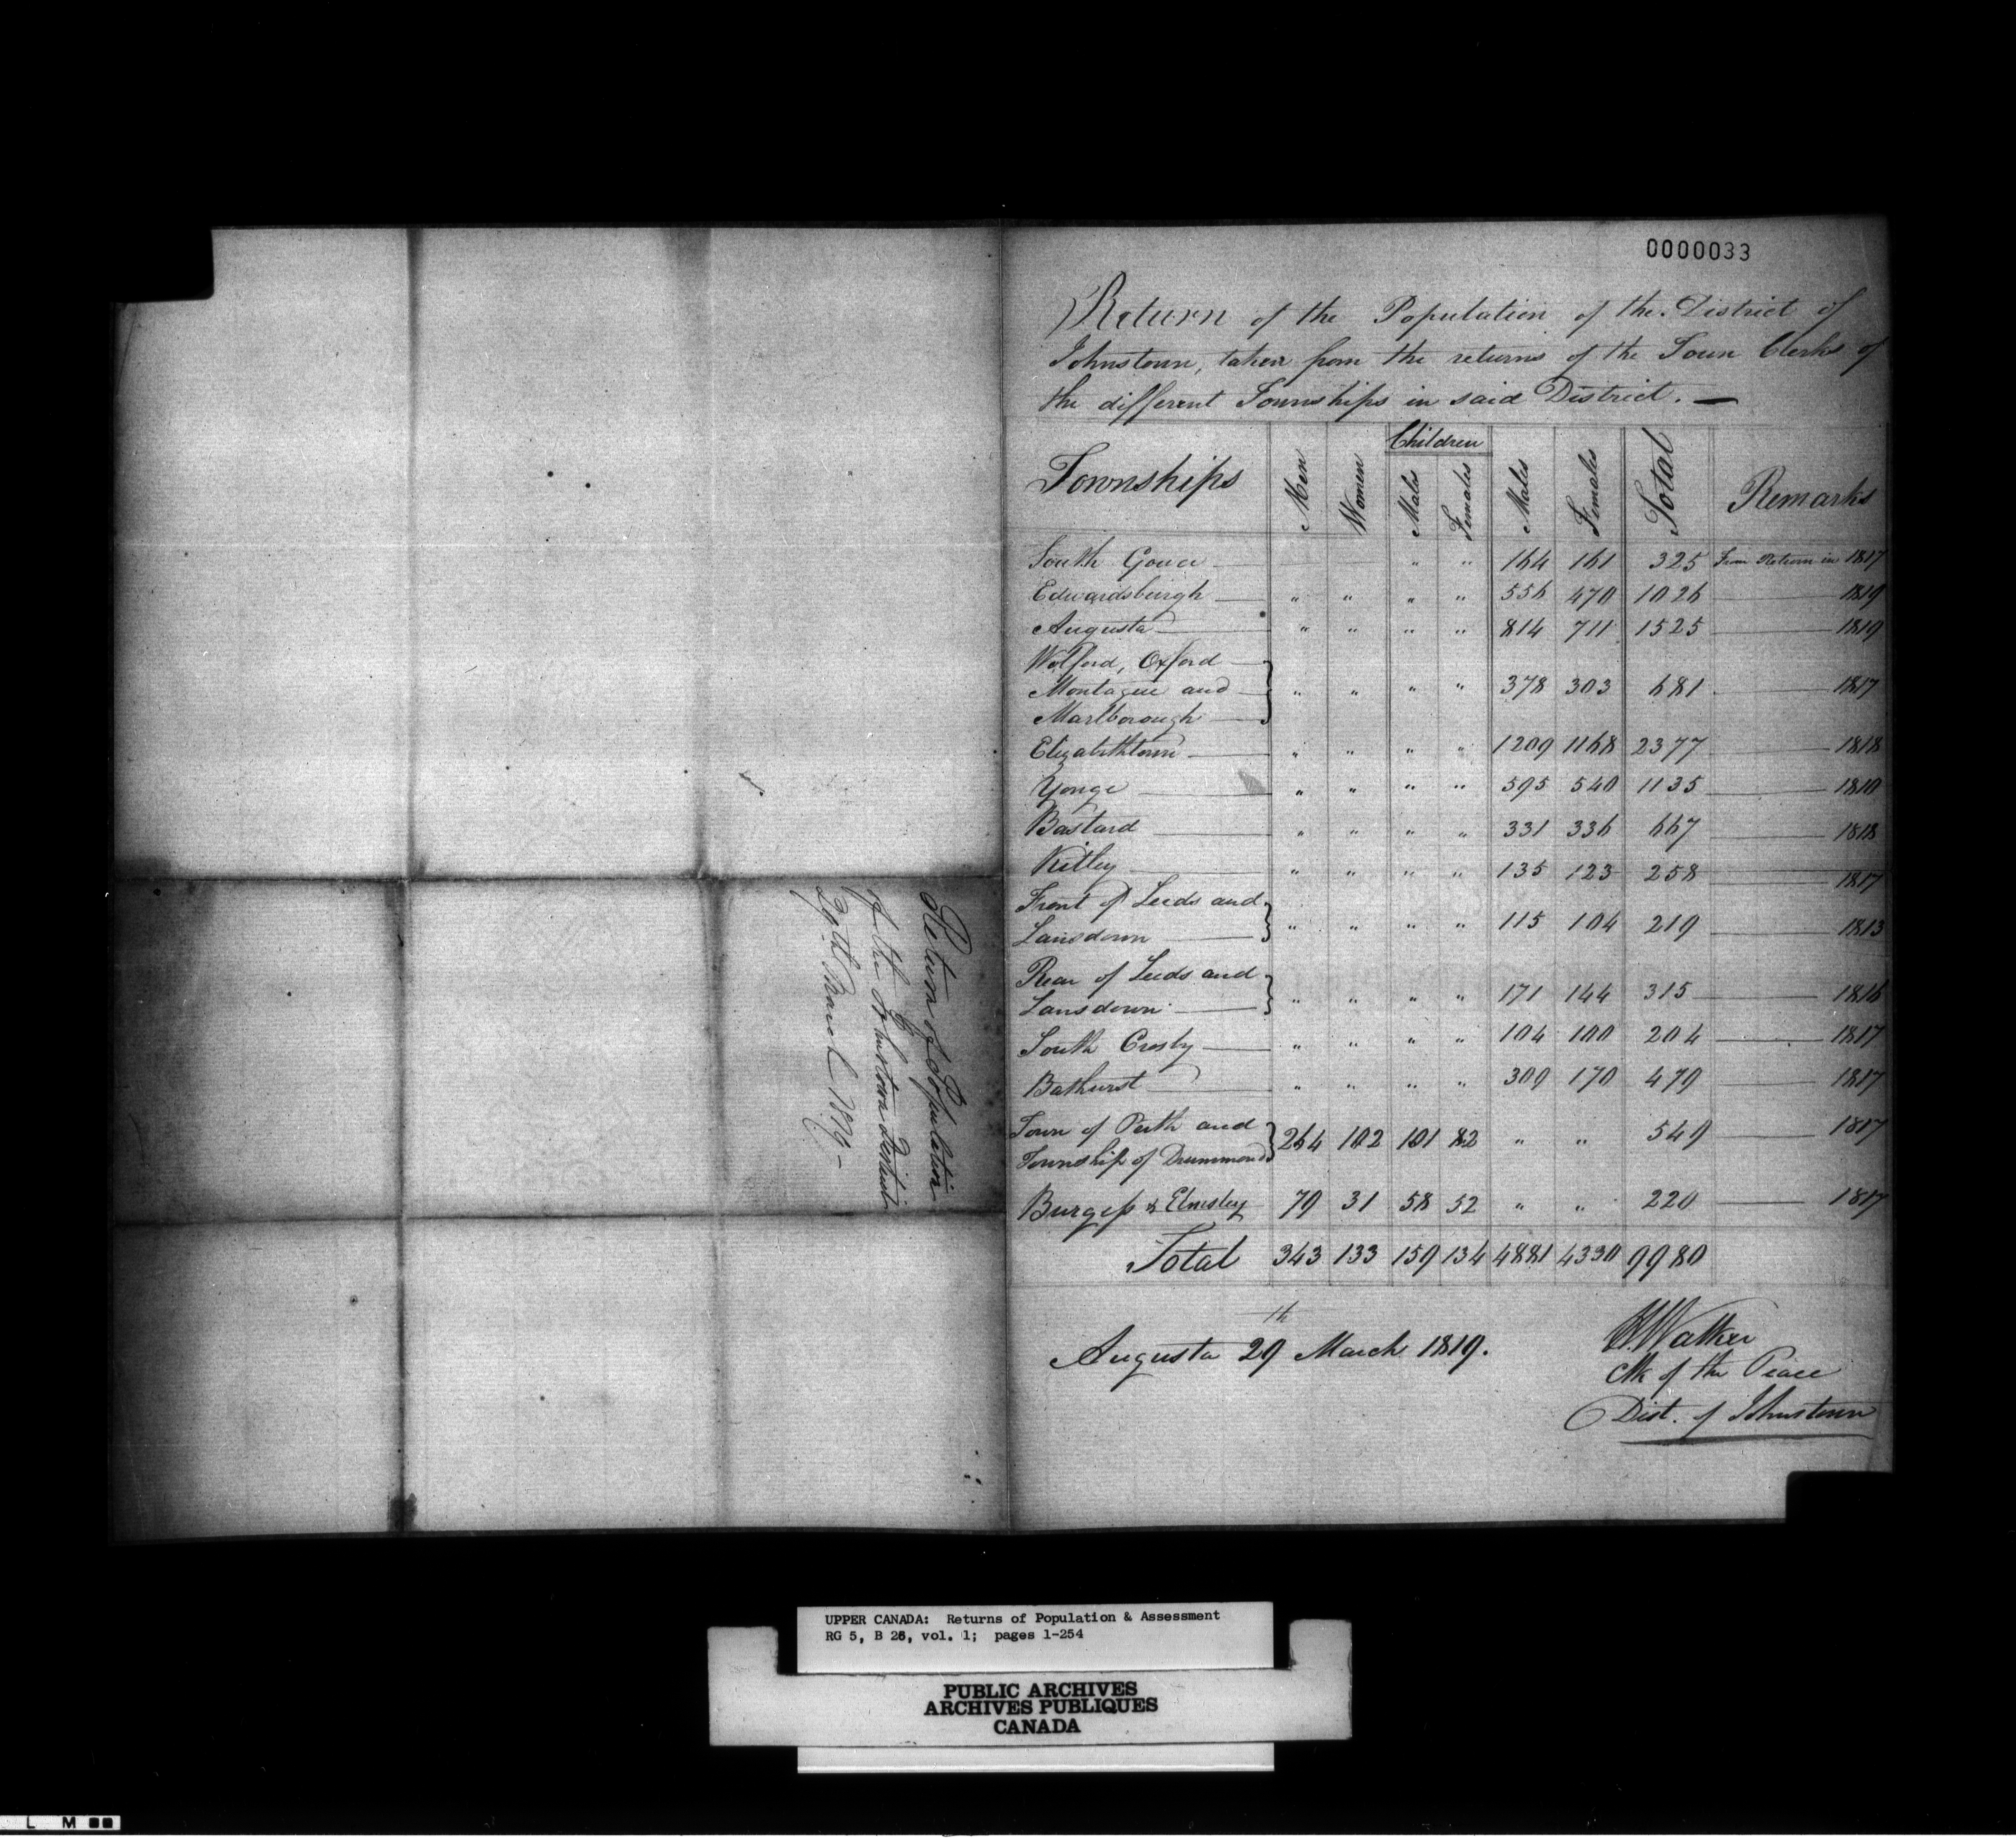 0000033
Return of the Population of the District of
Johnstown, taken from the returns of the Town Clerks of
the different Townships in said District. —
Townships Men Women Children Males Females Males Females Total Remarks
South Gower " " 164 161 325 From Return in 1817
Edwardsburgh " " " " 556 470 1026 1819
Augusta " " " " 814 711 1525 1819
Wolford, Oxford
Montague and " " " " 378 303 681 1817
Marlborough
Elizabethtown " " " " 1209 1168 2377 1818
Yonge " " " " 595 540 1135 1810
Bastard " " " " 331 336 667 1818
Kitley " " " " 135 123 258 1817
Front of Leeds and
Lansdown " " " " 115 104 219 1813
Rear of Leeds and
Lansdown " " " " 171 144 315 1816
South Crosby " " " " 104 100 204 1817
Bathurst " " " " 309 170 479 1817
Town of Perth and
Township of Drummond 264 102 101 82 " " 549 1817
Burgess & Elmsley 79 31 58 52 " " 220 1817
Total 343 133 159 134 4881 4330 9980
Augusta 29th March 1819.
Walker
Clk of the Peace
Dist. of Johnstown
Return of Population
of the Johnstown District
29th March 1819 –
UPPER CANADA: Returns of Population & Assessment
RG 5, B 26, vol. 1; pages 1-254
PUBLIC ARCHIVES
ARCHIVES PUBLIQUES
CANADA
L M